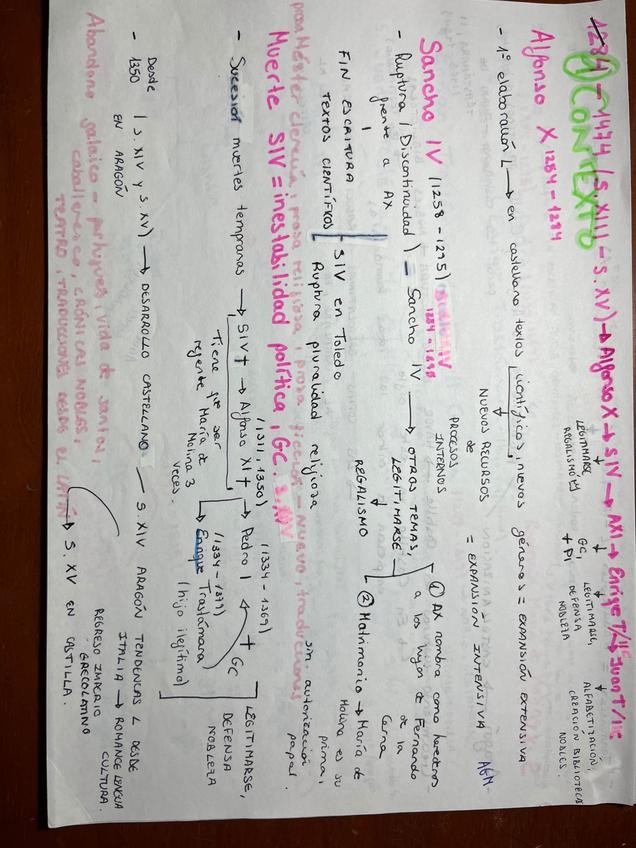 1284 - 1474 (S. XIII - S. XV) → Alfonso X → SIV → AXI → Enrique T/IIC → Juan T/IIC
1) CONTEXTO
LEGITIMARSE
REGALISMO
GC,
+ PI
LEGITIMARSE,
DEFENSA
NOBLEZA
ALFABETIZACIÓN,
CREACIÓN BIBLIOTECAS
NOBLES.
Alfonso X 1254 - 1284
- 1º elaboración L → en castellano textos científicos, nuevos géneros = EXPANSIÓN EXTENSIVA
NUEVOS RECURSOS = EXPANSIÓN INTENSIVA
de
PROCESOS
INTERNOS
Sancho IV (1258 - 1295)
1284 - 1295
- Ruptura (Discontinuidad) - Sancho IV → OTROS TEMAS,
frente a AX
LEGITIMARSE
REGALISMO
① AX nombra como herederos
a los hijos de Fernando
de la
Cerna
② Matrimonio → María de
Molina es su
prima,
sin autorización
papal.
FIN ESCRITURA
TEXTOS CIENTÍFICOS
SIV en Toledo
Ruptura pluralidad religiosa
prosa Méster clerecía, prosa religiosa, prosa ficción - Nuevo, traducciones
Muerte SIV = inestabilidad política, GC. S. XIV
- Sucesión muertes tempranas → SIV+ → Alfonso XI+ → Pedro I + GC
(1311-1350)
(1334 - 1369)
Tiene que ser
regente María de
Molina 3
veces.
→ Enrique Trastámara
(1334 - 1379)
(hijo ilegítimo)
LEGITIMARSE,
DEFENSA
NOBLEZA
- Desde (S. XIV y S. XV) → DESARROLLO CASTELLANO - S. XIV ARAGÓN TENDENCIAS L DESDE
1350 EN ARAGÓN
ITALIA → ROMANCE LENGUA
CULTURA.
REGRESO IMPERIO
GRECOLATINO
→ S. XV EN CASTILLA.
Abandono galaico - portugues, vida de santos,
caballeresco, CRÓNICAS NOBLES,
TEATRO, TRADUCCIONES DESDE EL LATÍN